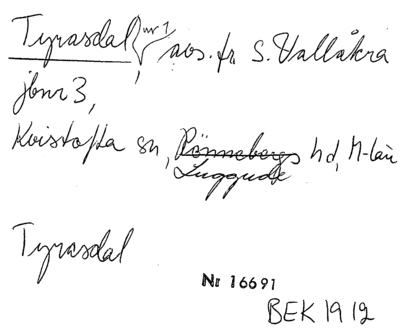 Tyrasdal nr 1, avs. fr. S. Vallåkra
jbnr 3,
Kvistofta sn, Rönnebergs hd, M-län
Luggude
Tyrasdal
Nr 16691
BEK 1912